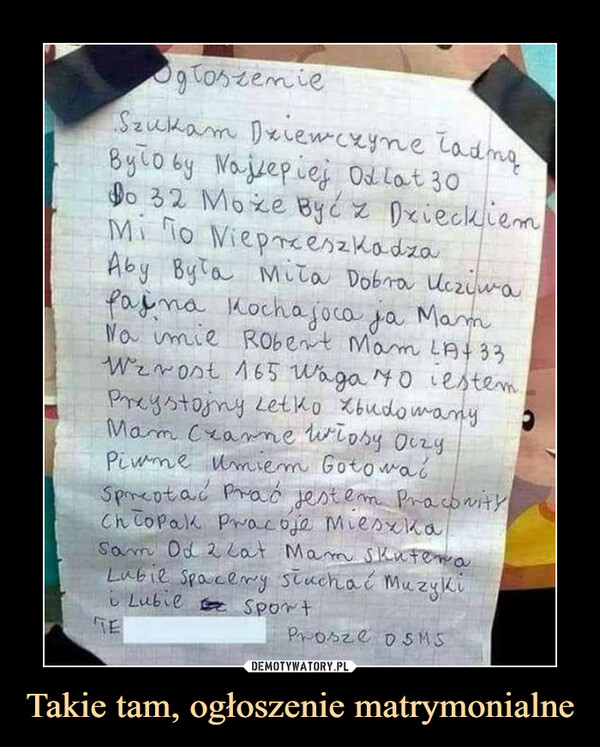 Ogłoszenie
Szukam Dziewczyne ładną
Było by Najlepiej Od lat 30
Do 32 Może Być z Dzieckiem
Mi To Nieprzeszkadza
Aby Była Miła Dobra Uczciwa
fajna Kochajoca ja Mam
Na imie Robert Mam LAt 33
Wzrost 165 Waga 70 iestem
Przystojny Letko zbudowany
Mam Czarne włosy Oczy
Piwne Umiem Gotować
Sprzotać Prać jestem Pracowity
Chłopak Pracoje Mieszka
Sam Od 2 Lat Mam Skutera
Lubie Spacery słuchać Muzyki
i Lubie Sport
TE
Prosze O SMS
DEMOTYWATORY.PL
Takie tam, ogłoszenie matrymonialne